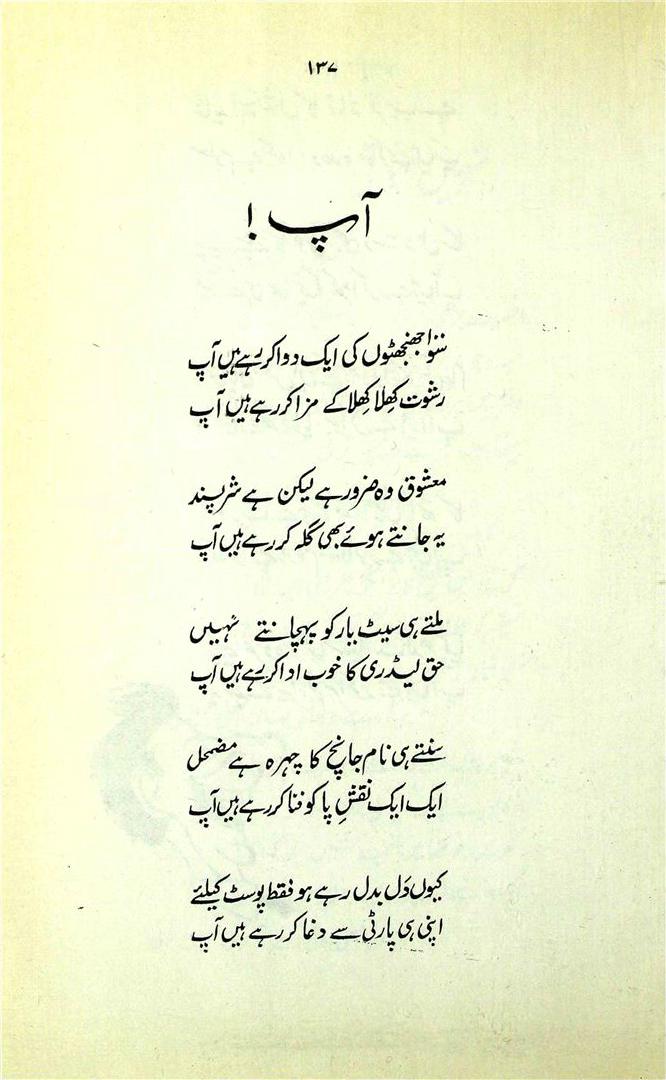 ۱۳۷
آپ !
سَوا جھنجھٹوں کی ایک دوا کر رہے ہیں آپ
رشوت کھِلا کھِلا کے مزا کر رہے ہیں آپ
معشوق وہ ضرور ہے لیکن ہے شر پسند
یہ جانتے ہوئے بھی گلہ کر رہے ہیں آپ
ملتے ہی سیٹ یار کو پہچانتے نہیں
حق لیڈری کا خوب ادا کر رہے ہیں آپ
سنتے ہی نام جانچ کا چہرہ ہے مضمحل
ایک ایک نقشِ پا کو فنا کر رہے ہیں آپ
کیوں دَل بدل رہے ہو فقط پوسٹ کیلئے
اپنی ہی پارٹی سے دغا کر رہے ہیں آپ